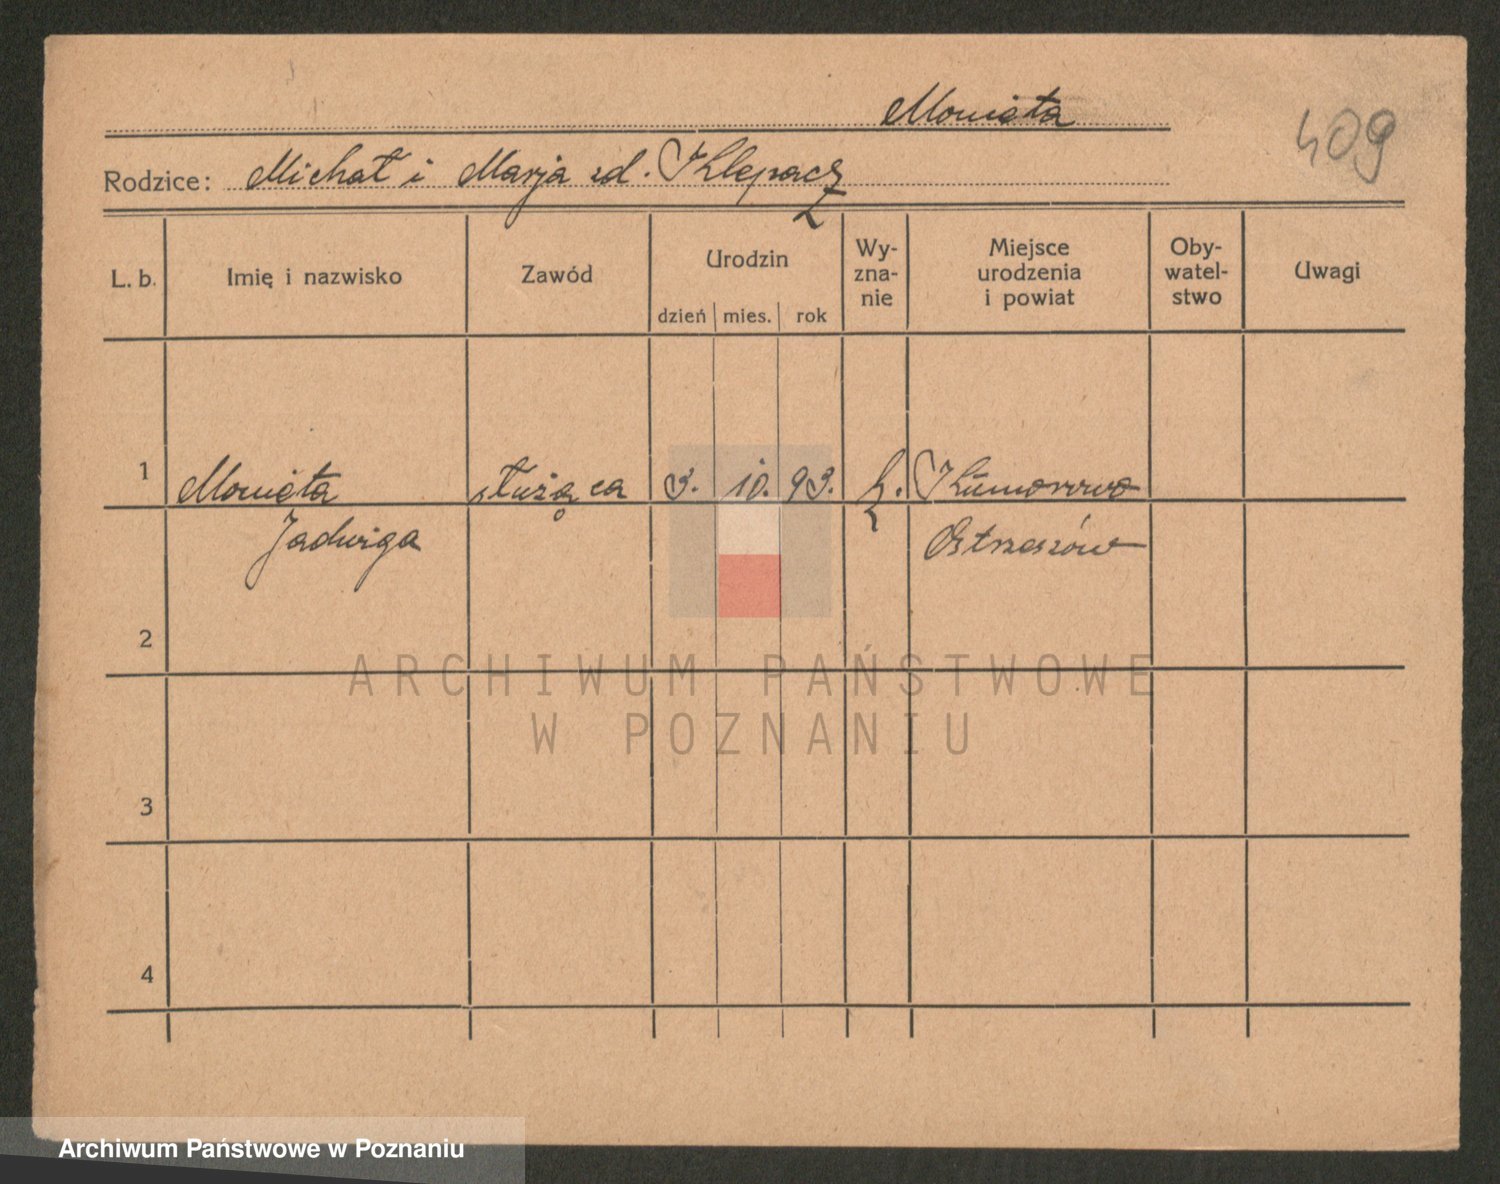 Monieta
409
Rodzice: Michał i Marja zd. Klepacz
L. b. Imię i nazwisko Zawód Urodzin dzień mies. rok Wy-zna-nie Miejsce urodzenia i powiat Oby-watel-stwo Uwagi
1 Monieta służąca 3. 10. 93. k. Kumorowo
Jadwiga Ostrzeszów
2
ARCHIWUM PAŃSTWOWE
W POZNANIU
3
4
Archiwum Państwowe w Poznaniu